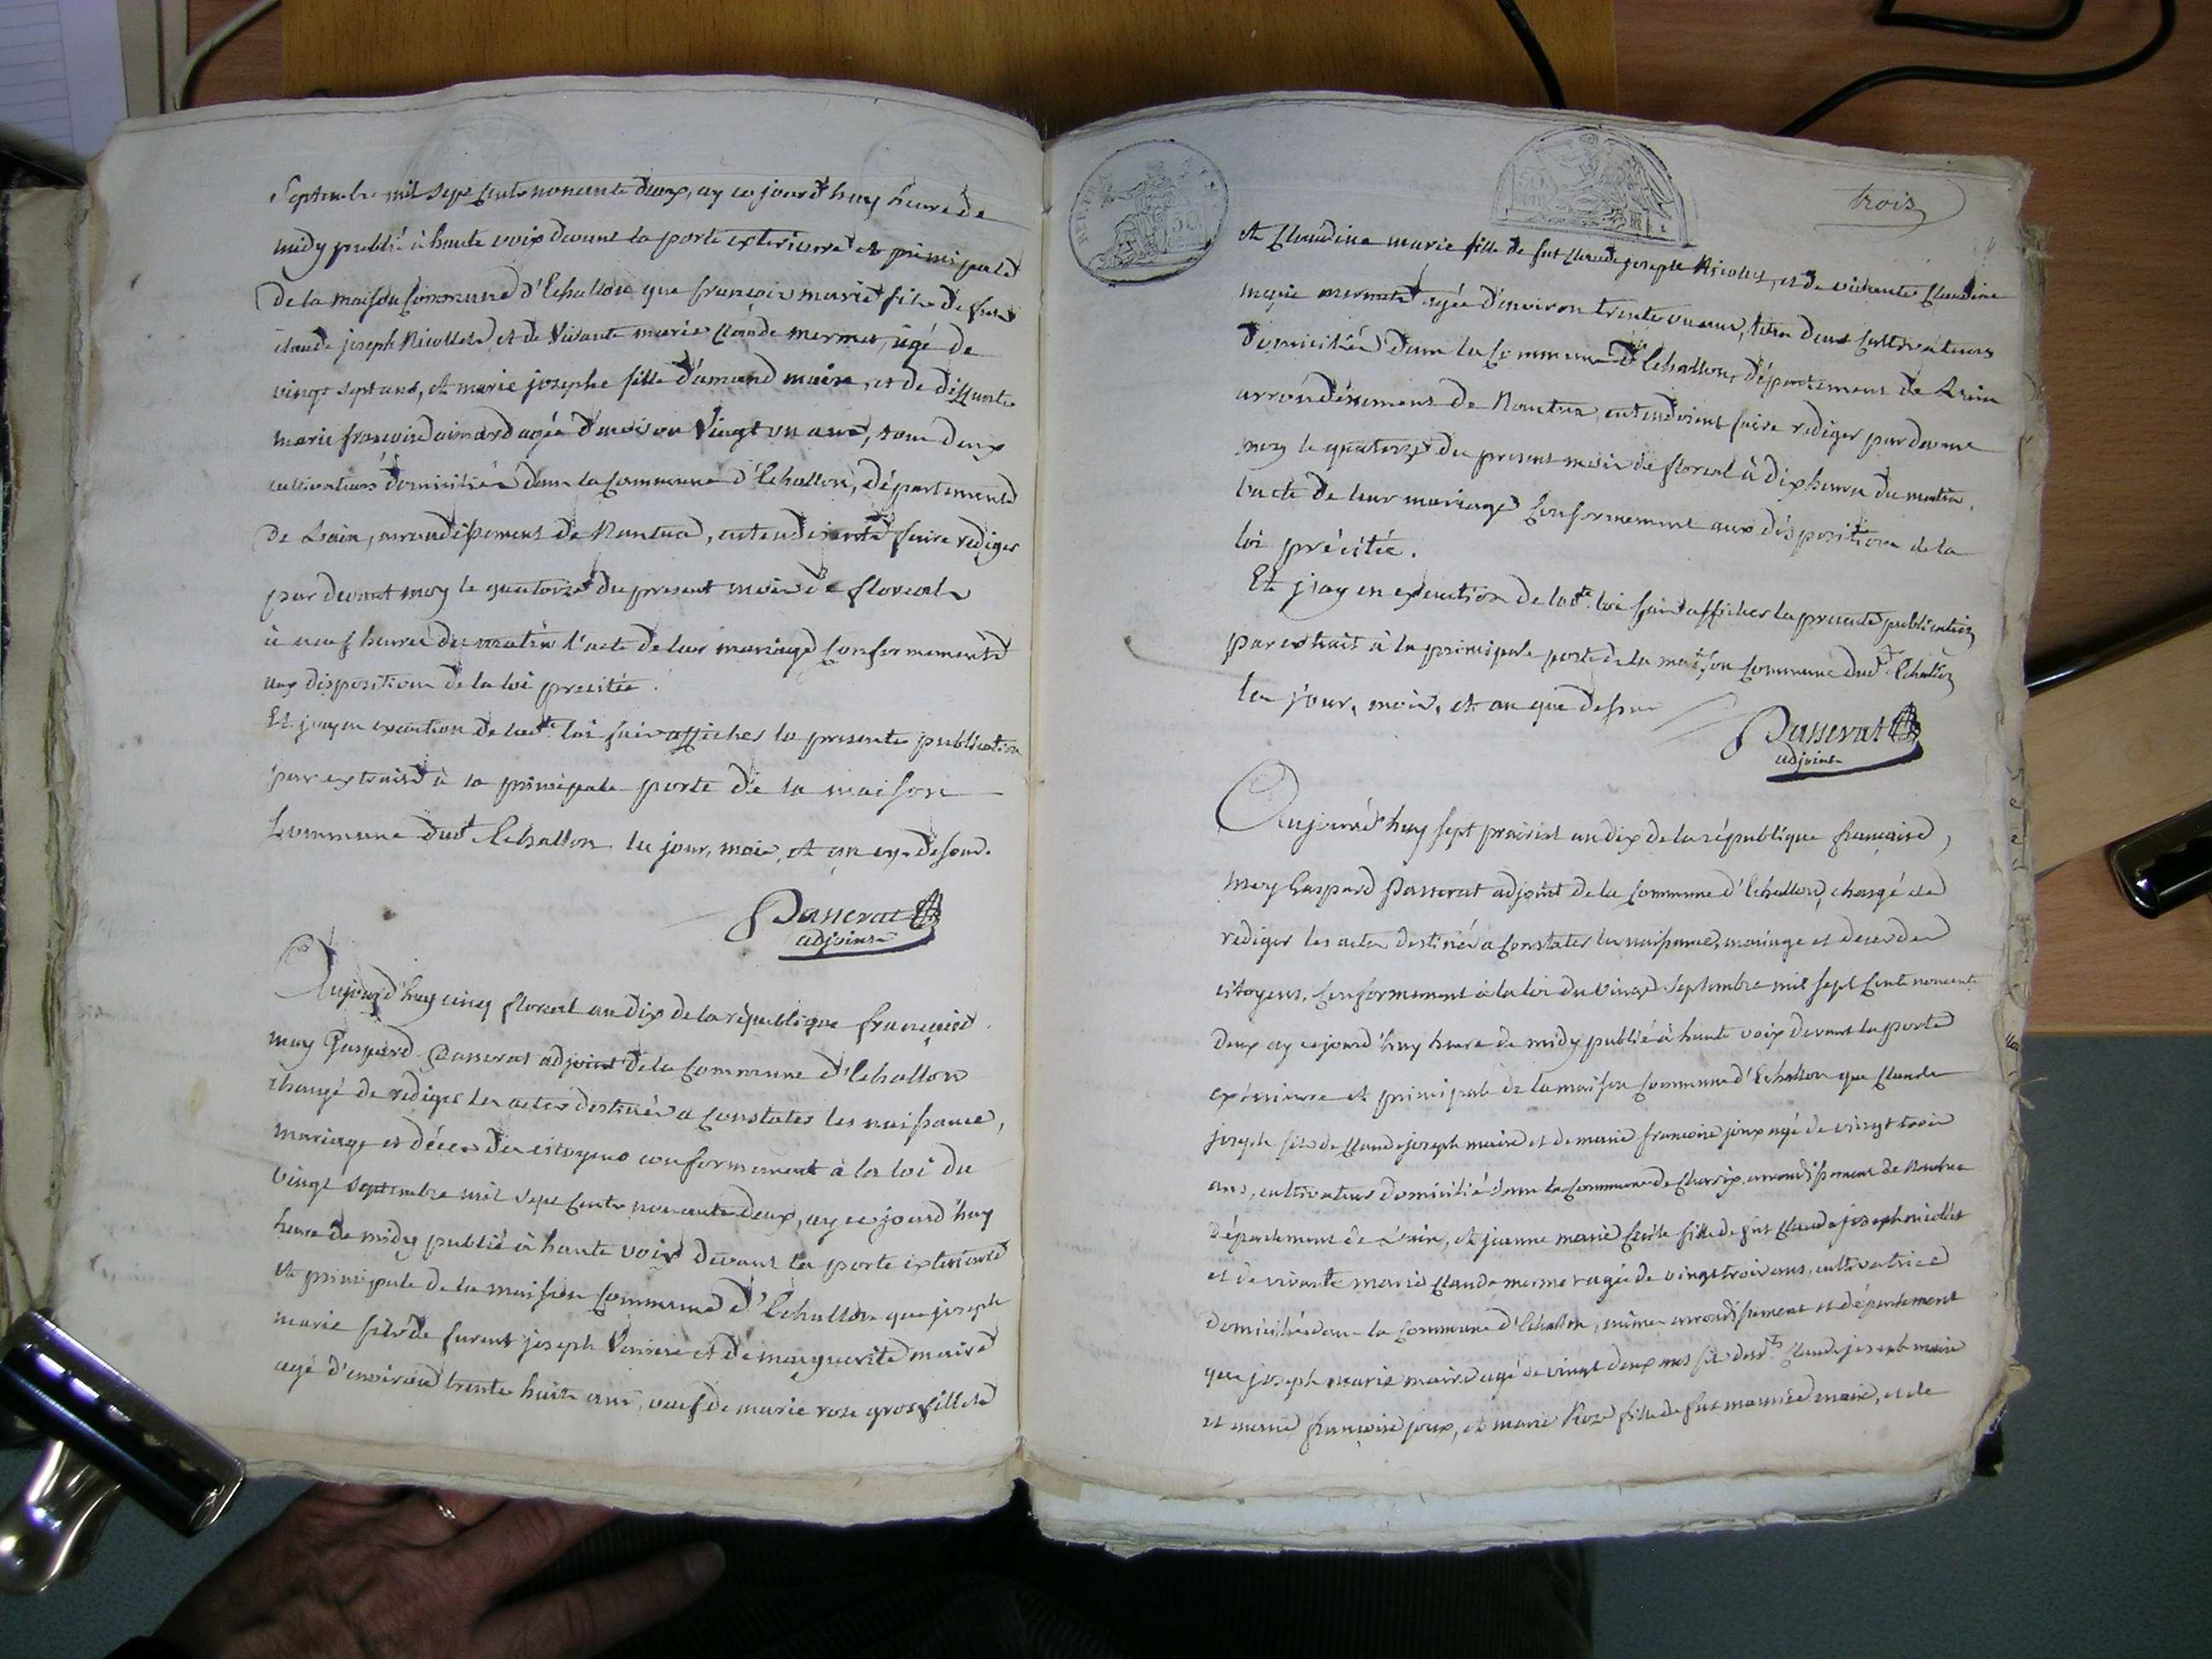 Septembre mil sept cents nonante deux, ay ce jourd'huy heure de
midy publié à haute voix devant la porte exterieure et principale
de la maison commune d'Echallon que françois marie fils de feu
claude joseph Nicollet et de vivante marie claude mermet, agé de
vingt sept ans, et marie josephe fille d'amand maire, et de deffunte
marie françoise agée d'environ vingt un ans, tous deux
cultivateurs domiciliés dans la commune d'Echallon, département
de Lain, arrondissement de Nantua, entendoient faire rediger
par devant moy le quatorze du present mois de floreal
à neuf heures du matin l'acte de leur mariage conformement
aux disposition de la loi precitée.
Et j'ay en execution de ladte loi fait afficher la presente publication
par extrait à la principale porte de la maison
commune dudt Echallon les jour, mois, et an que dessus.
Passerat
adjoint
Aujourd'huy cinq floreal an dix de la république française
moy Gaspard Passerat adjoint de la commune d'Echallon
chargé de rediger les actes destinés a constater les naissance,
mariage et décès des citoyens conformement à la loi du
vingt septembre mil sept cents nonante deux, ay ce jourd'huy
heure de midy publié à haute voix devant la porte exterieure
et principale de la maison commune d'Echallon que joseph
marie fils de joseph et de marguerite maire
agé d'environ trente huit ans, veuf de marie rose grosfillet
trois
et Claudine marie fille de fut claude joseph Nicollet, et de vivante Claudine
marie mermet agée d'environ trente un ans, tous deux cultivateurs
domiciliés dans la commune d'Echallon, département de Lain
arrondissement de Nantua, entendoient faire rediger par devant
moy le quatorze du present mois de floreal à dix heures du matin,
l'acte de leur mariage conformement aux disposition de la
loi précitée.
Et j'ay en execution de ladte loi fait afficher la presente publication
par extrait à la principale porte de la maison commune dudt Echallon
les jour, mois, et an que dessus
Passerat
adjoint
Aujourd'huy sept prairial an dix de la république française,
moy Gaspard Passerat adjoint de la commune d'Echallon, chargé de
rediger les actes destinés a constater les naissance, mariage et deces des
citoyens, conformement à la loi du vingt septembre mil sept cents nonante
deux ay ce jourd'huy heure de midy publié à haute voix devant la porte
exterieure et principale de la maison commune d'Echallon que claude
joseph fils de claude joseph maire et de marie françoise joux agé de vingt trois
ans, cultivateur domicilié dans la commune de Charix, arrondissement de Nantua
département de Lain, et jeanne marie fille de fut claude joseph nicollet
et de vivante marie claude mermet agée de vingt trois ans, cultivatrice
domiciliée dans la commune d'Echallon, même arrondissement et département
que joseph marie maire agé de vingt deux ans fils desdts claude joseph maire
et marie françoise joux, et marie Roze fille de fut maire, et de